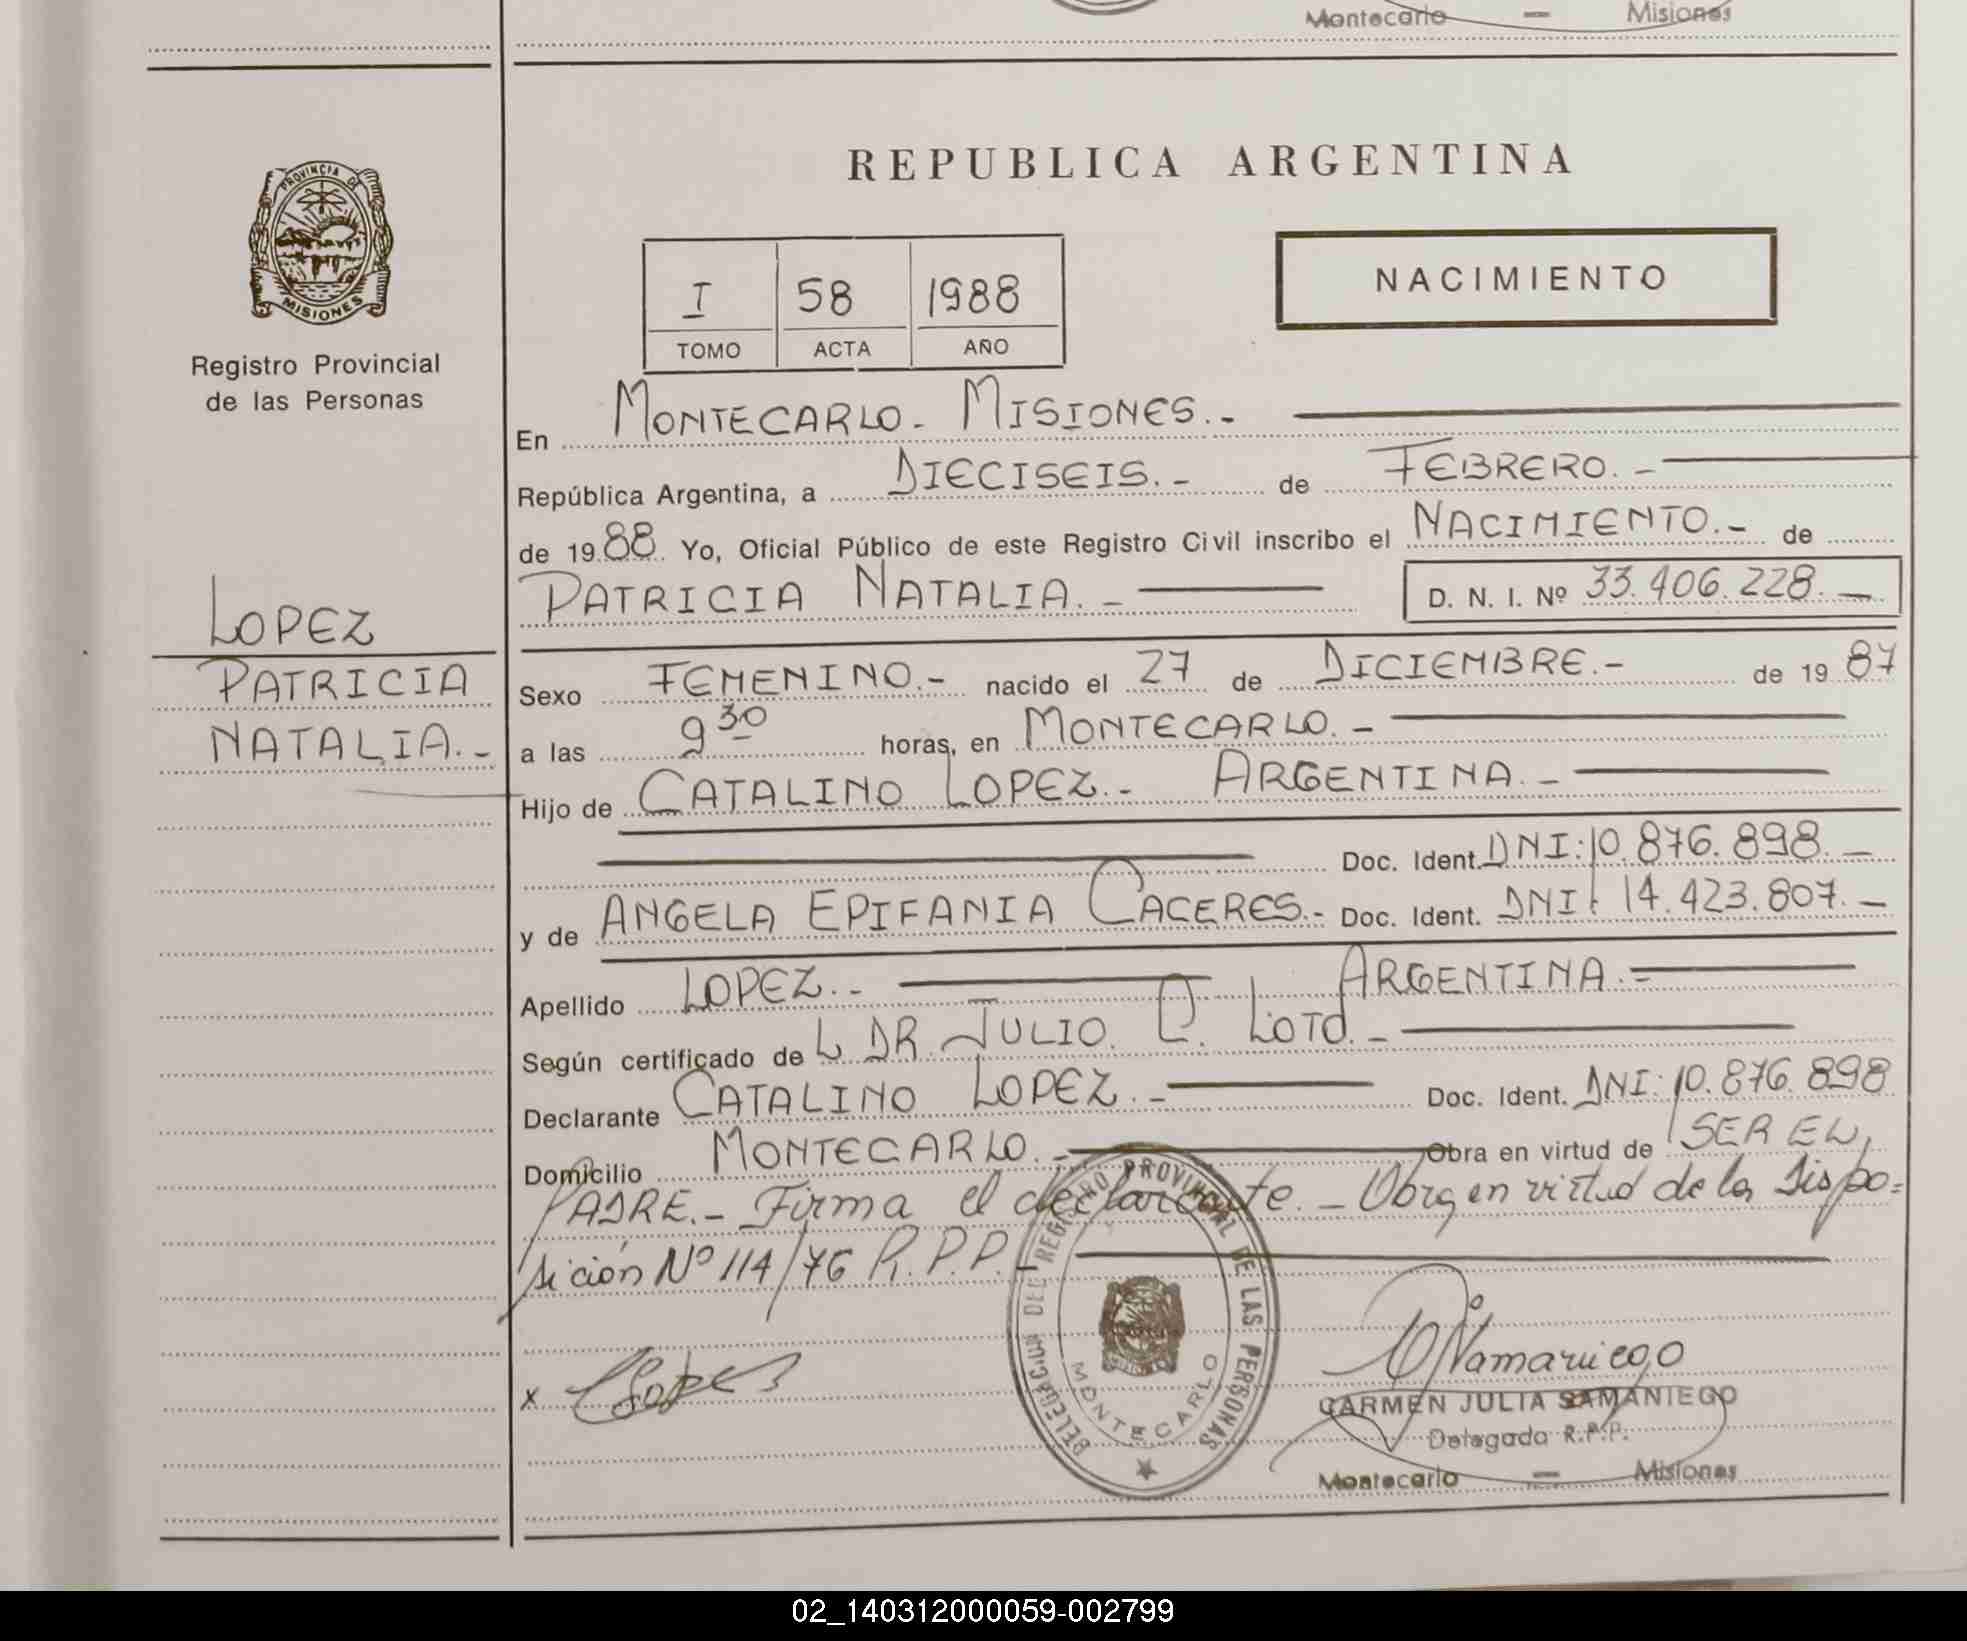 Montecarlo — Misiones
REPUBLICA ARGENTINA
PROVINCIA DE
MISIONES
Registro Provincial
de las Personas
I 58 1988
TOMO ACTA AÑO
NACIMIENTO
En MONTECARLO. MISIONES.-
República Argentina, a DIECISEIS.- de FEBRERO.-
de 1988. Yo, Oficial Público de este Registro Civil inscribo el NACIMIENTO.- de
PATRICIA NATALIA.- D. N. I. Nº 33.406.228.-
LOPEZ
PATRICIA
NATALIA.-
Sexo FEMENINO.- nacido el 27 de DICIEMBRE.- de 1987
a las 9 30 horas, en MONTECARLO.-
Hijo de CATALINO LOPEZ.- ARGENTINA.-
Doc. Ident. DNI: 10.876.898.-
y de ANGELA EPIFANIA CACERES.- Doc. Ident. DNI: 14.423.807.-
Apellido LOPEZ.- ARGENTINA.-
Según certificado de L DR. JULIO. C. LOTO.-
Declarante CATALINO LOPEZ.- Doc. Ident. DNI: 10.876.898
Domicilio MONTECARLO.- Obra en virtud de SER EL
PADRE.- Firma el declarante.- Obra en virtud de la Dispo=
sición Nº 114/76 R.P.P.-
DELEGACION DEL REGISTRO PROVINCIAL DE LAS PERSONAS
MONTECARLO
x
CARMEN JULIA SAMANIEGO
Delegada R.P.P.
Montecarlo — Misiones
02_140312000059-002799